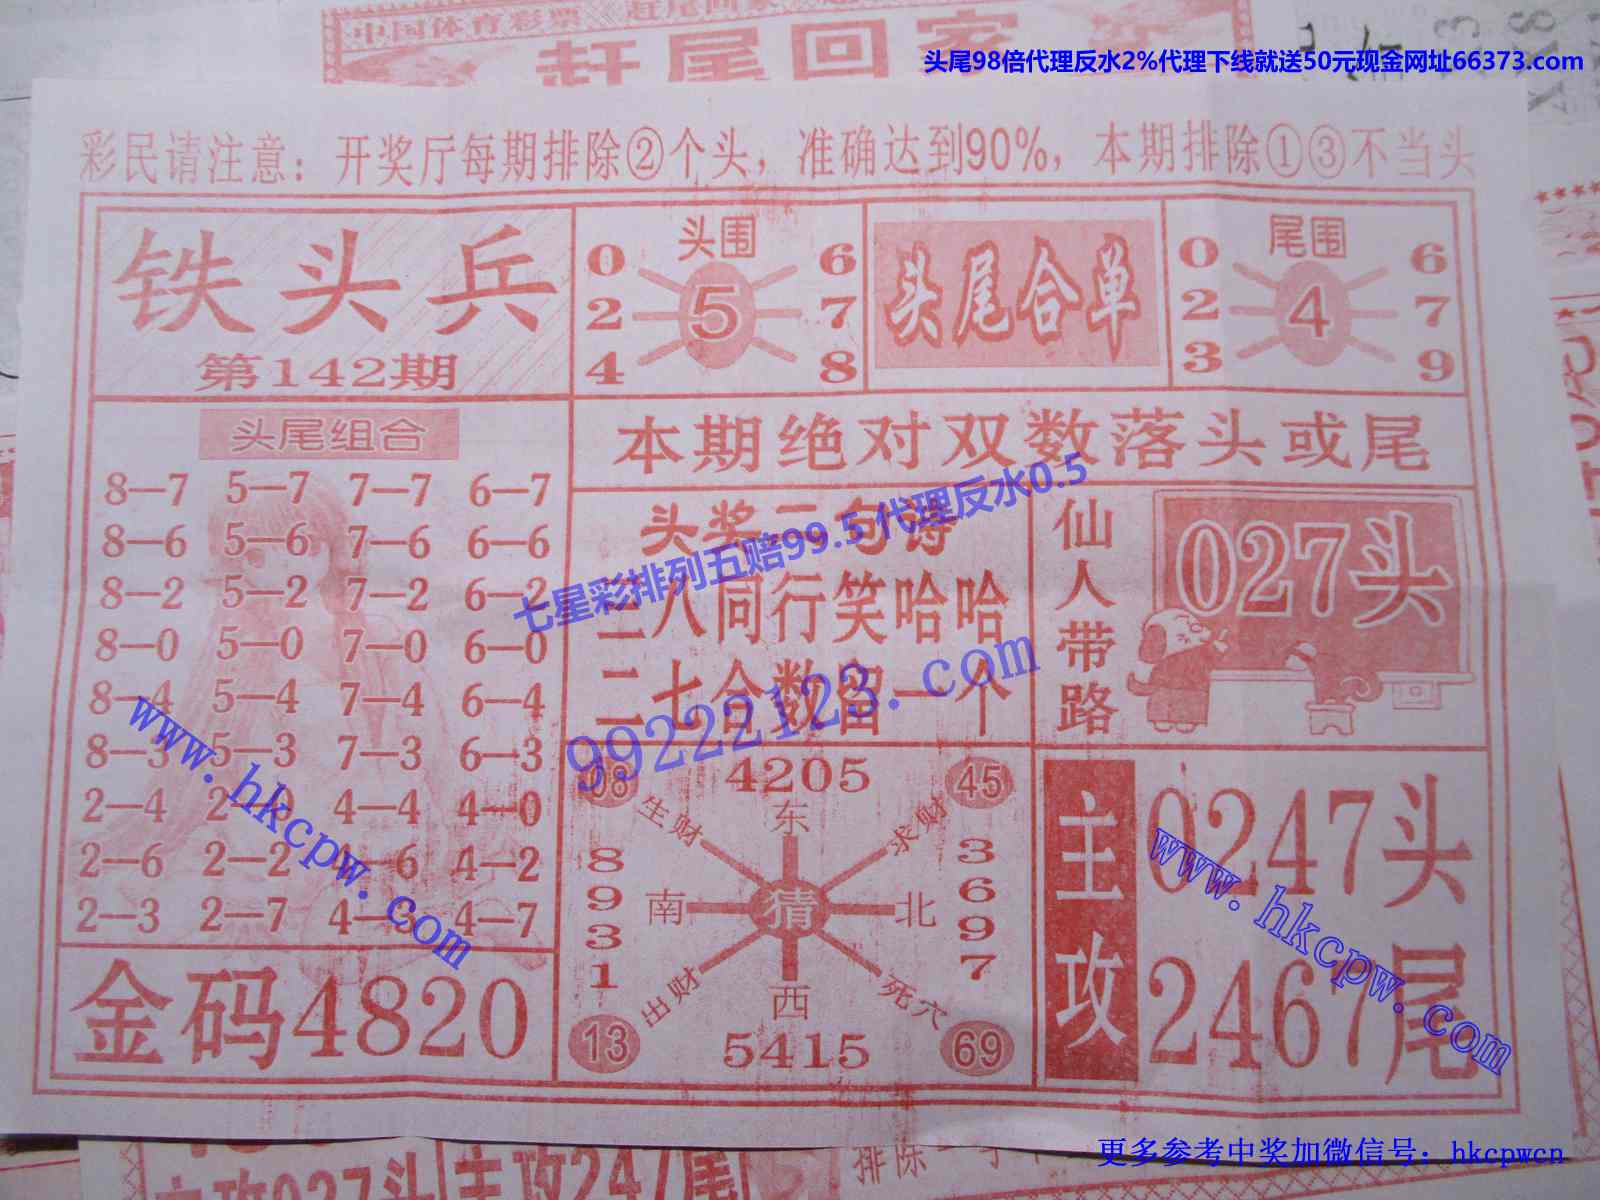 中国体育彩票
赶尾回家
头尾98倍代理反水2%代理下线就送50元现金网址66373.com
彩民请注意：开奖厅每期排除②个头，准确达到90%，本期排除①③不当头
铁头兵
第142期
头围
0 6
2 5 7
4 8
头尾合单
尾围
0 6
2 4 7
3 9
头尾组合
8—7 5—7 7—7 6—7
8—6 5—6 7—6 6—6
8—2 5—2 7—2 6—2
8—0 5—0 7—0 6—0
8—4 5—4 7—4 6—4
8—3 5—3 7—3 6—3
2—4 2—0 4—4 4—0
2—6 2—2 4—6 4—2
2—3 2—7 4—3 4—7
金码4820
本期绝对双数落头或尾
头奖二句诗
八同行笑哈哈
二七合数留一个
七星彩排列五赔99.5 代理反水0.5
99222123.com
仙人带路
027头
4205
98 45
生财 东 求财
8931
南 猜 北
3697
出财 西 死穴
13 69
5415
主攻
0247头
2467尾
www.hkcpw.com
www.hkcpw.com
主攻027头
主攻247尾
排除一
更多参考中奖加微信号：hkcpwcn